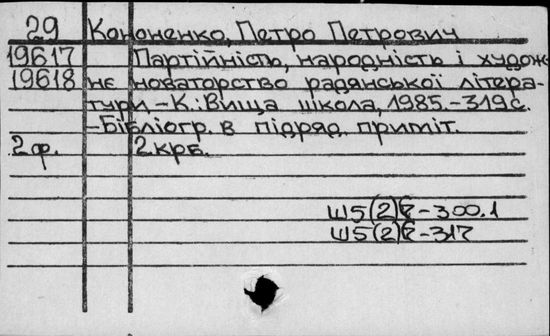 29 Кононенко, Петро Петрович
19617 Партійність, народність і худож-
19618 нє новаторство радянської літера-
тури.-К.: Вища школа, 1985.-319с.
-Бібліогр. в підряд. приміт.
2ф. 2крб.
Ш5(2)-300.1
Ш5(2)-317